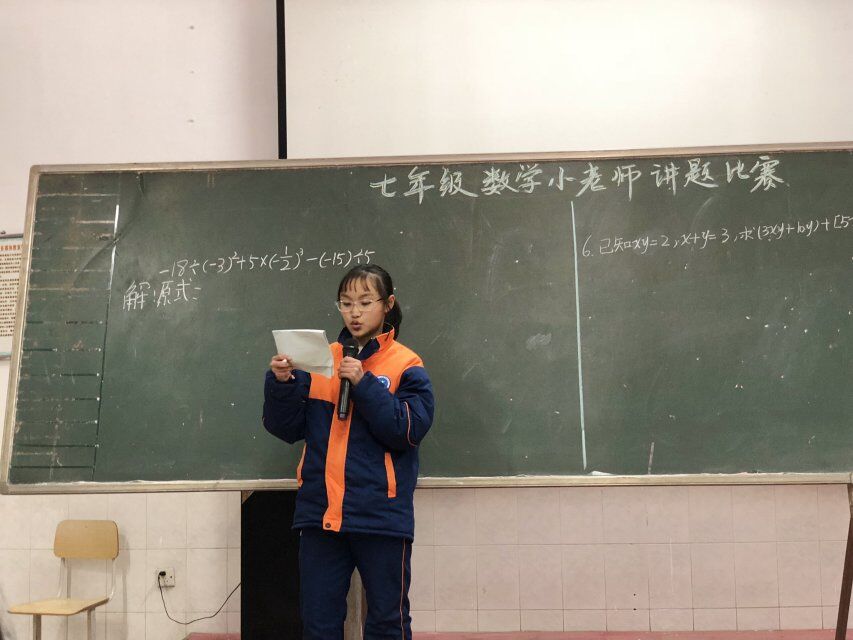 七年级数学小老师讲题比赛
-18÷(-3)²+5×(-1/2)³-(-15)÷5
解:原式=
6.已知xy=2,x+y=3,求(3xy+10y)+[5-